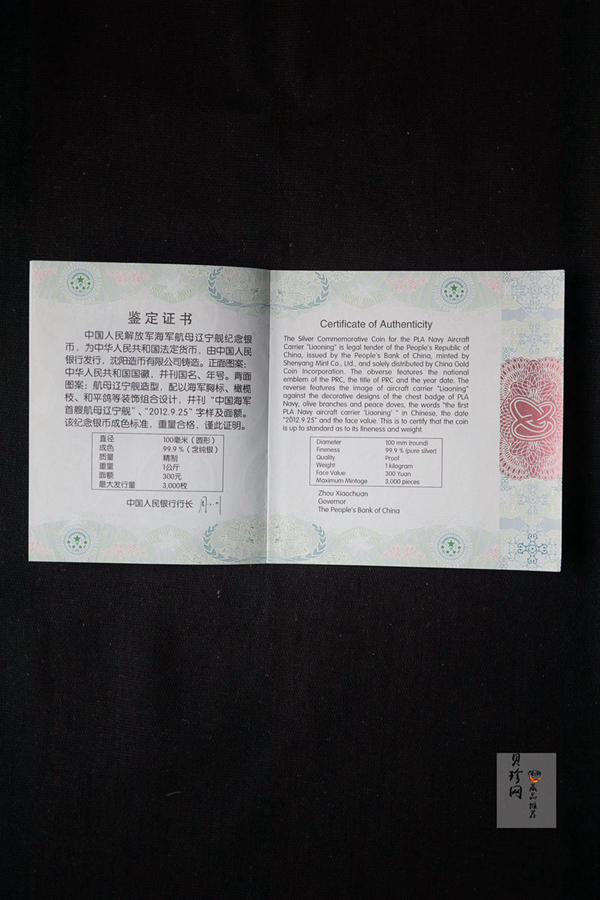 鉴定证书
中国人民解放军海军航母辽宁舰纪念银
币，为中华人民共和国法定货币，由中国人民
银行发行，沈阳造币有限公司铸造。正面图案：
中华人民共和国国徽，并刊国名、年号。背面
图案：航母辽宁舰造型，配以海军胸标、橄榄
枝、和平鸽等装饰组合设计，并刊“中国海军
首艘航母辽宁舰”、“2012.9.25”字样及面额。
该纪念银币成色标准，重量合格，谨此证明。
直径 100毫米（圆形）
成色 99.9％（含纯银）
质量 精制
重量 1公斤
面额 300元
最大发行量 3,000枚
中国人民银行行长
Certificate of Authenticity
The Silver Commemorative Coin for the PLA Navy Aircraft
Carrier "Liaoning" is legal tender of the People's Republic of
China, issued by the People's Bank of China, minted by
Shenyang Mint Co., Ltd., and solely distributed by China Gold
Coin Incorporation. The obverse features the national
emblem of the PRC, the title of PRC and the year date. The
reverse features the image of aircraft carrier "Liaoning"
against the decorative designs of the chest badge of PLA
Navy, olive branches and peace doves, the words "the first
PLA Navy aircraft carrier 'Liaoning' " in Chinese, the date
"2012.9.25" and the face value. This is to certify that the coin
is up to standard as to its fineness and weight.
Diameter 100 mm (round)
Fineness 99.9 % (pure silver)
Quality Proof
Weight 1 kilogram
Face Value 300 Yuan
Maximum Mintage 3,000 pieces
Zhou Xiaochuan
Governor
The People's Bank of China
贝珍网
藏品推荐